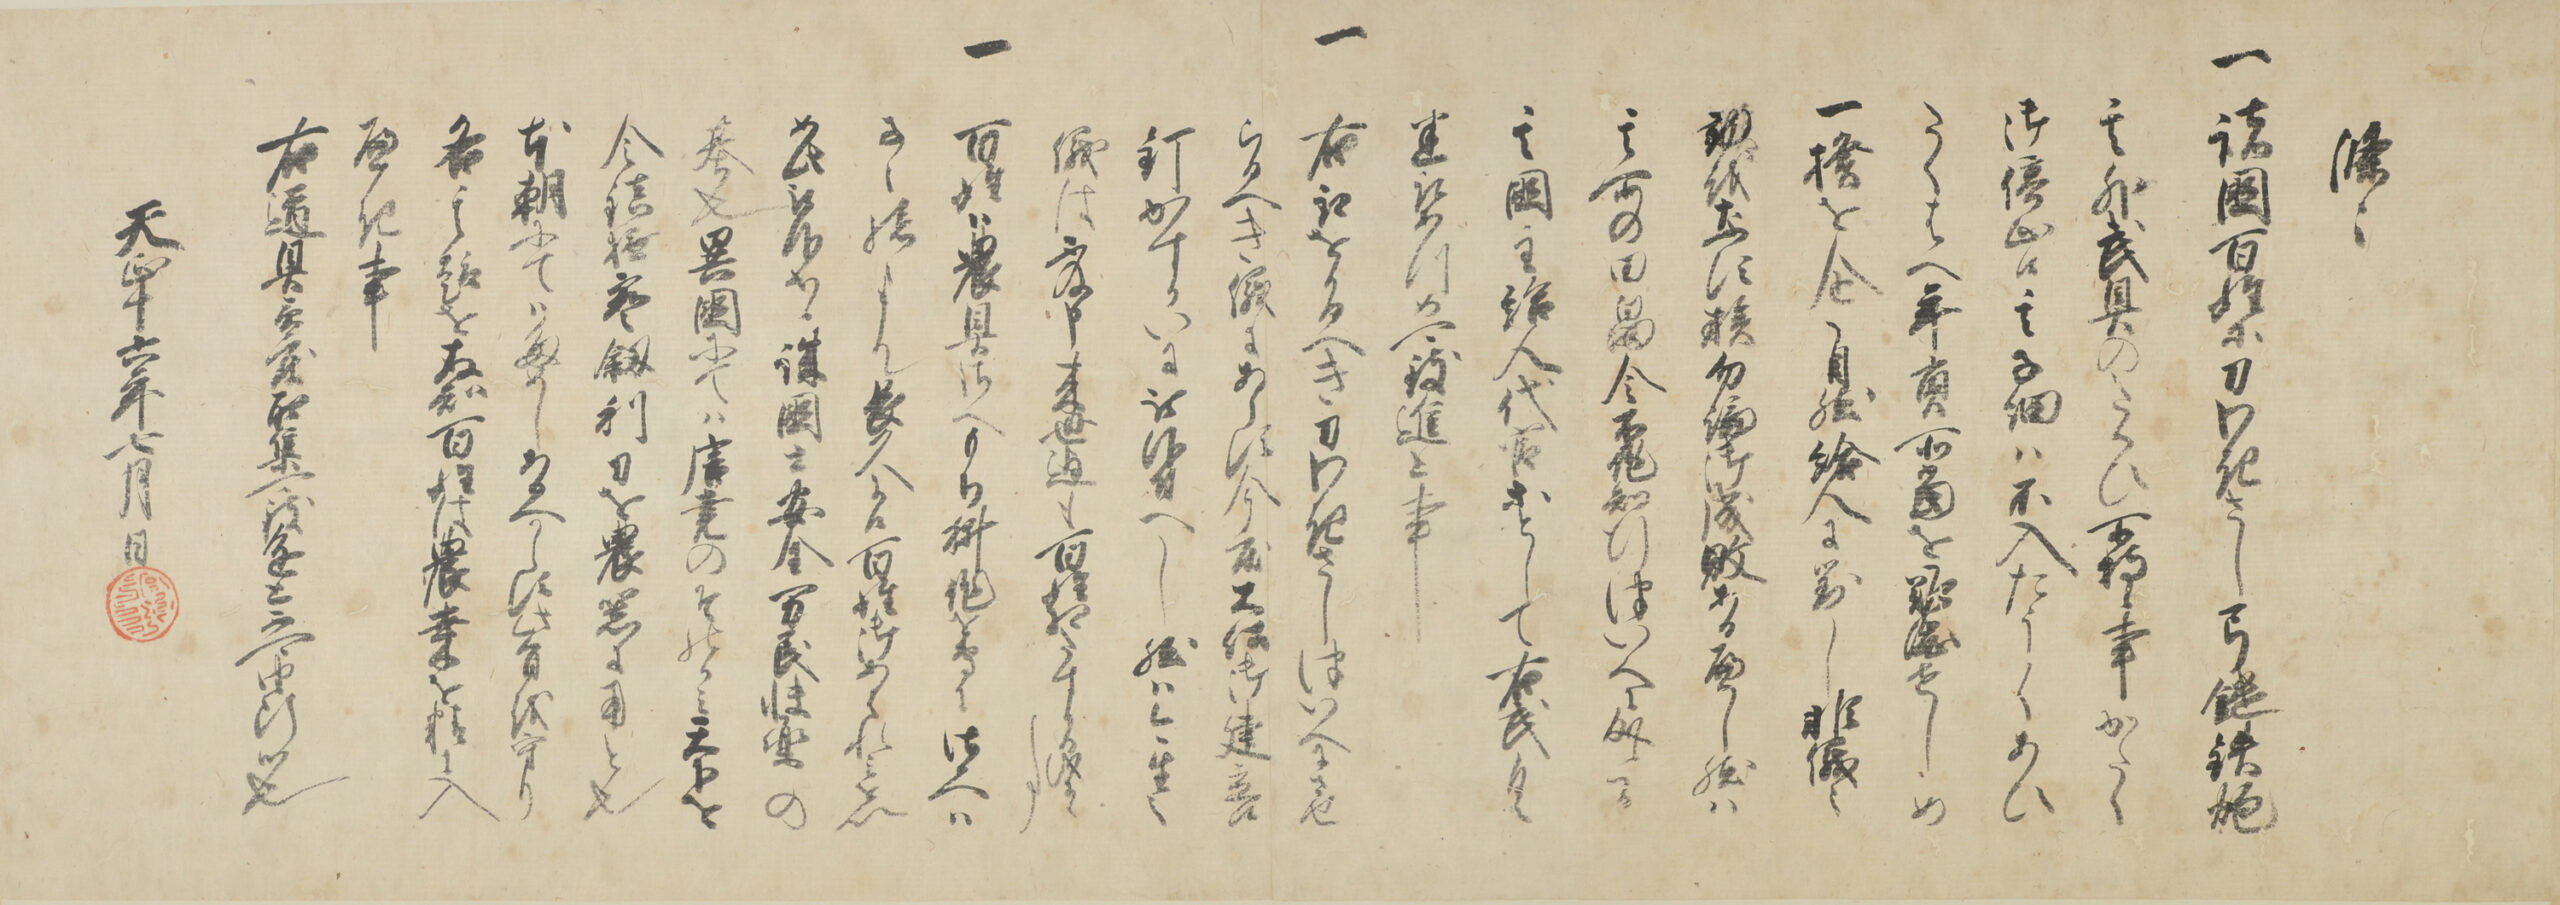 條々
一諸國百姓等刀わきさし弓鑓鉄炮
其外武具のたくひ所持候事かたく
御停止候其子細ハ不入たうくあひ
たくはへ年貢所當を難渋せしめ
一揆を企自然給人に對し非儀之
動をなす族勿論御成敗あるへし然ハ
其所の田畠令不作知行ついへ候間
其國主給人代官等として右武具
悉取あつめ可致進上事
一右取をかるへき刀わきさしついへにさせ
らるへき儀にあらす今度大仏御建立
釘かすかいに被仰付へし然ハ今生之
儀は不及申来世迄も百姓相たすかる儀候
一百姓ハ農具さへもち耕作専に仕候へハ
子々孫々まて長久候百姓御あはれミを以
如此被仰出候誠國土安全万民快楽の
基也異國にてハ唐尭のそのかミ天下を
令鎮撫宝釼利刀を農器に用と也
本朝にてハためしあるへからす此旨を守り
各其趣を存知百姓は農桑を精入
へき事
右道具急度取集可致進上不可由断候也
天正十六年七月 日